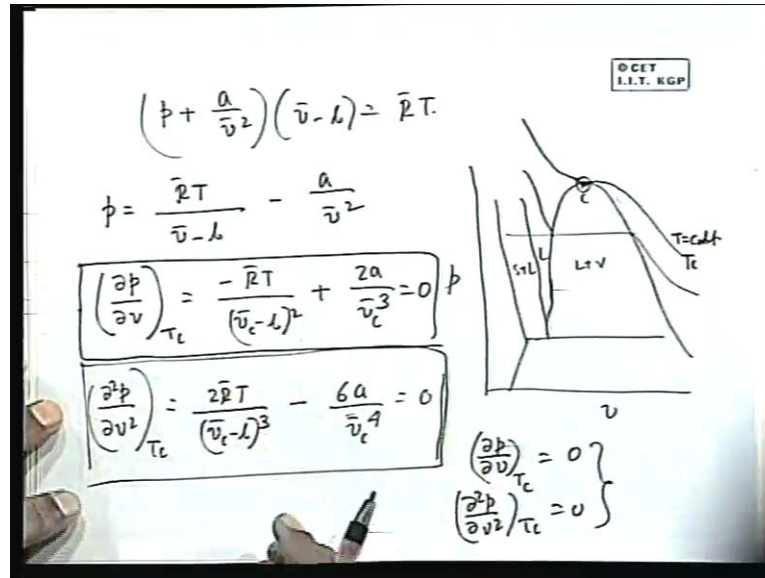 © CET
I.I.T. KGP
(p + a/v̄²)(v̄ - b) = R̄T.
p = R̄T/(v̄ - b) - a/v̄²
(∂p/∂v)_Tc = -R̄T/(v̄c - b)² + 2a/v̄c³ = 0
(∂²p/∂v²)_Tc = 2R̄T/(v̄c - b)³ - 6a/v̄c⁴ = 0
p
C
T=const
Tc
S+L
L
L+V
v
(∂p/∂v)_Tc = 0
(∂²p/∂v²)_Tc = 0